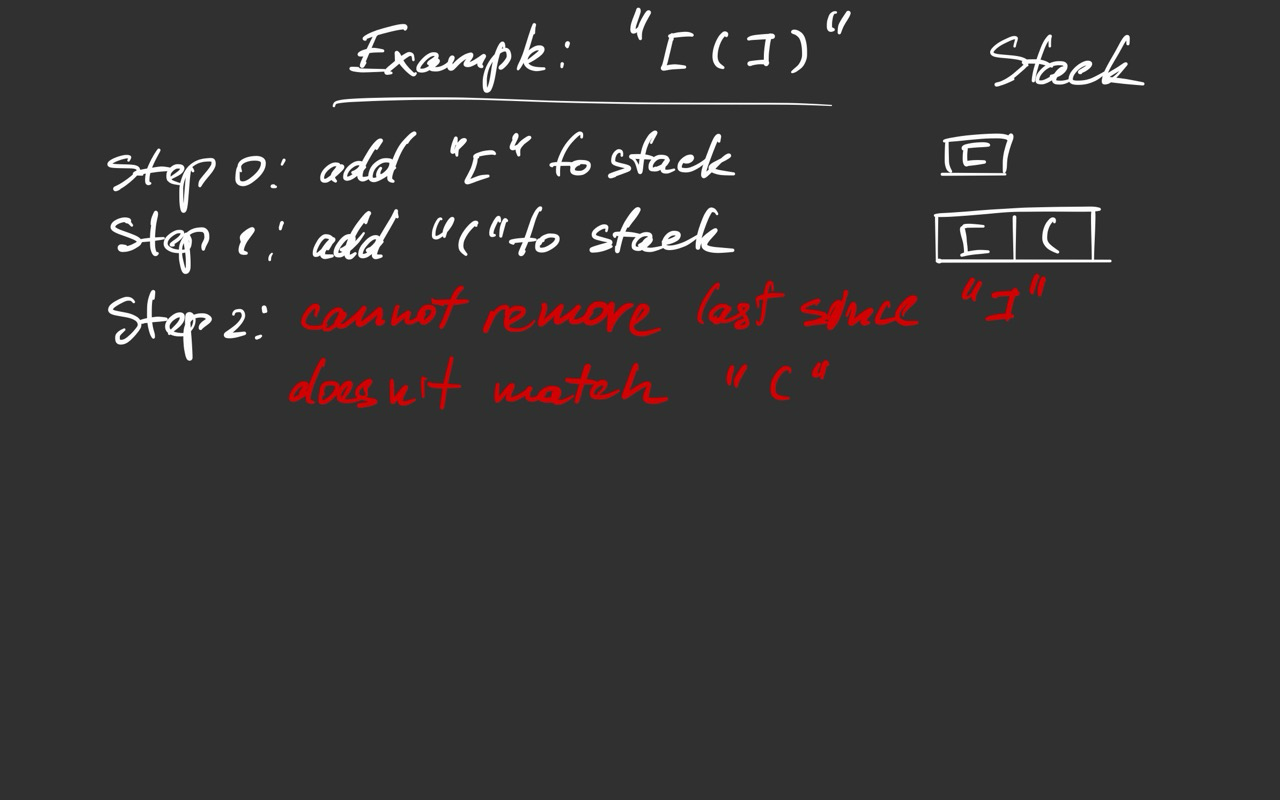 Example: "[(])"
Stack
Step 0: add "[" to stack
[
Step 1: add "(" to stack
[ (
Step 2: cannot remove last since "]"
doesn't match "("